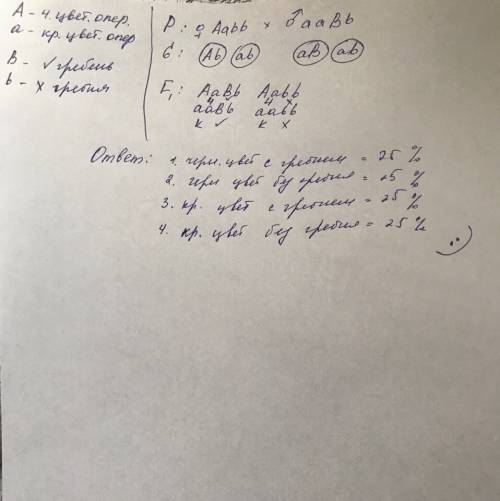 А - ч. цвет. опер.
а - кр. цвет. опер
В - ✓ гребень
b - х гребня
P: ♀ Aabb × ♂ aaBb
G: Ab ab aB ab
F₁: AaBb Aabb
ч ✓ ч х
aaBb aabb
к ✓ к х
Ответ: 1. черн. цвет с гребнем = 25 %
2. черн цвет без гребня = 25 %
3. кр. цвет с гребнем = 25 %
4. кр. цвет без гребня = 25 %